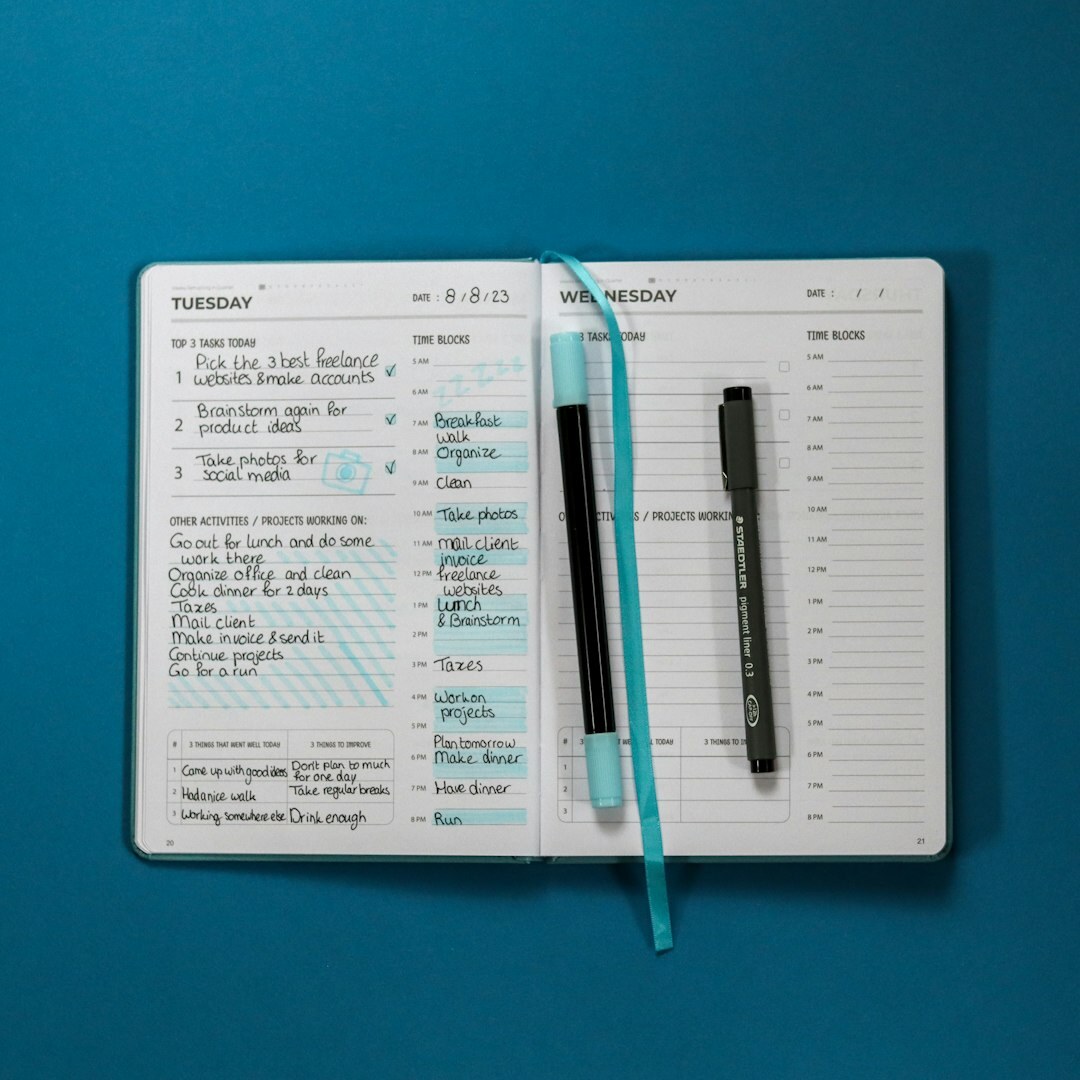 TUESDAY
DATE : 8/8/23
TOP 3 TASKS TODAY
1 Pick the 3 best freelance
websites & make accounts
2 Brainstorm again for
product ideas
3 Take photos for
social media
OTHER ACTIVITIES / PROJECTS WORKING ON:
Go out for lunch and do some
work there
Organize office and clean
Cook dinner for 2 days
Taxes
Mail client
Make invoice & send it
Continue projects
Go for a run
# 3 THINGS THAT WENT WELL TODAY 3 THINGS TO IMPROVE
1 Came up with good ideas Don't plan to much
for one day
2 Had a nice walk Take regular breaks
3 Working somewhere else Drink enough
20
TIME BLOCKS
5 AM ZZZzz
6 AM
7 AM Breakfast
walk
8 AM Organize
9 AM Clean
10 AM Take photos
11 AM mail client
invoice
12 PM freelance
websites
1 PM Lunch
& Brainstorm
2 PM
3 PM Taxes
4 PM Work on
projects
5 PM
Plan tomorrow
6 PM Make dinner
7 PM Have dinner
8 PM Run
WEDNESDAY
DATE : / /
3 TASKS TODAY
/ PROJECTS
# WELL TODAY 3 THINGS
1
2
3
TIME BLOCKS
5 AM
6 AM
7 AM
8 AM
9 AM
10 AM
11 AM
12 PM
1 PM
2 PM
3 PM
4 PM
5 PM
6 PM
7 PM
8 PM
21
STAEDTLER pigment liner 0.3